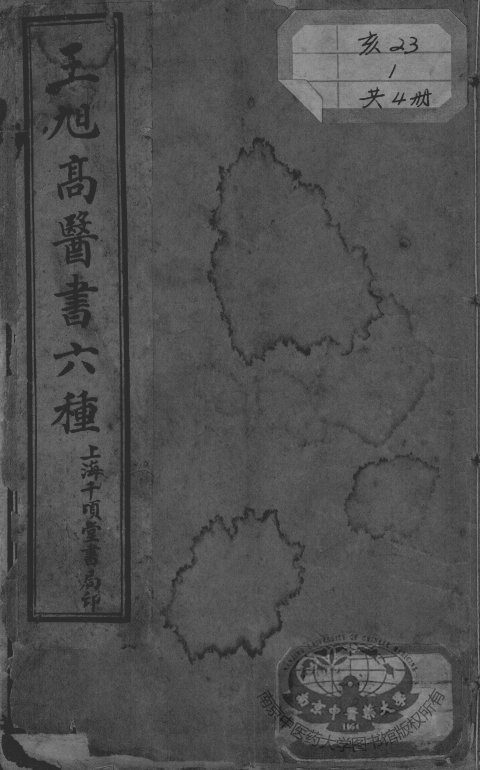 王旭高醫書六種
上海千頃堂書局印
亥23
1
共4册
南京中醫藥大學
1954
南京中医药大学图书馆版权所有